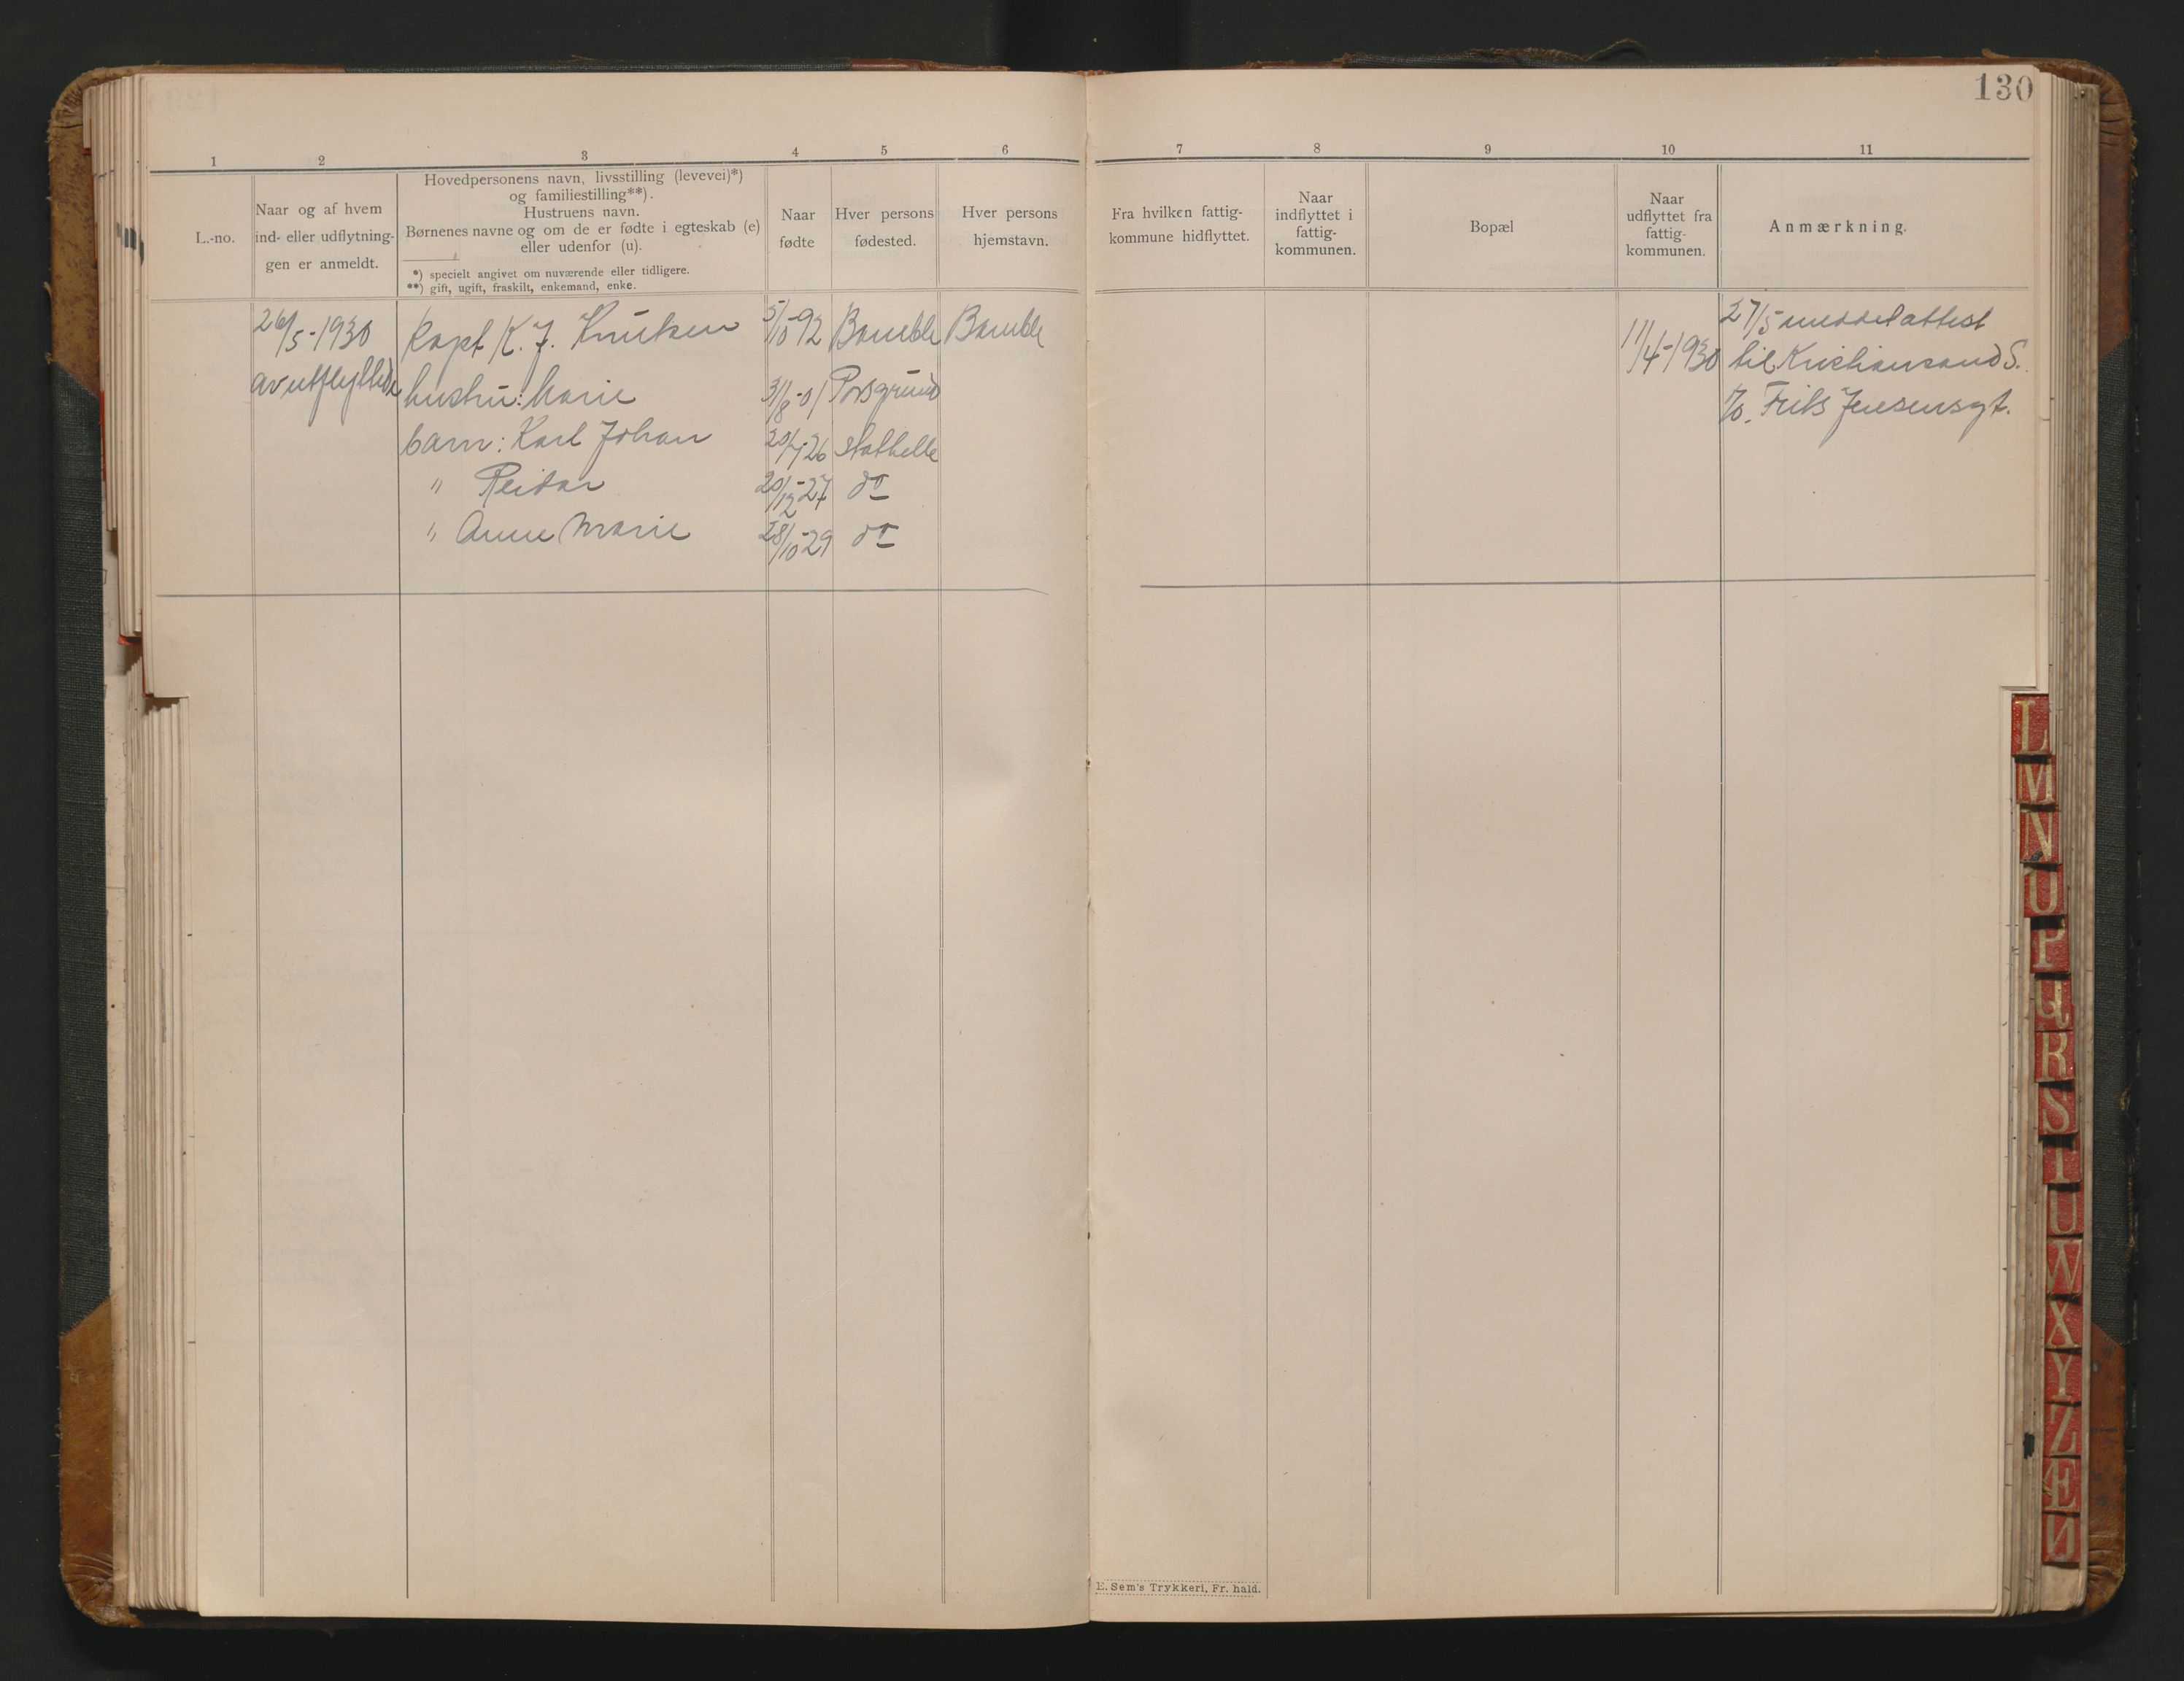 130
1 2 3 4 5 6 7 8 9 10 11
L.-no.
Naar og af hvem
ind- eller udflytnin-
gen er anmeldt.
Hovedpersonens navn, livsstilling (levevei)*)
og familiestilling**).
Hustruens navn.
Børnenes navne og om de er fødte i egteskab (e)
eller udenfor (u).
*) specielt angivet om nuværende eller tidligere.
**) gift, ugift, fraskilt, enkemand, enke.
Naar
fødte
Hver persons
fødested.
Hver persons
hjemstavn.
Fra hvilken fattig-
kommune hidflyttet.
Naar
indflyttet i
fattig-
kommunen.
Bopæl
Naar
udflyttet fra
fattig-
kommunen.
Anmærkning.
26/5-1930 Kapt K. J. Knutsen 5/10-92 Bamble Bamble 11/4-1930 27/5 meddel attest
av utflyttede hustru: Marie 31/8-01 Porsgrund til Kristiansand S.
barn: Karl Johan 20/7-26 Stathelle Frits Jensensgt.
" Reidar 20/12-27 do
" Anne Marie 28/10-29 do
L
M
N
O
P
Q
R
S
T
U
W
X
Y
Z
Æ
E. Sem's Trykkeri, Fr. hald.